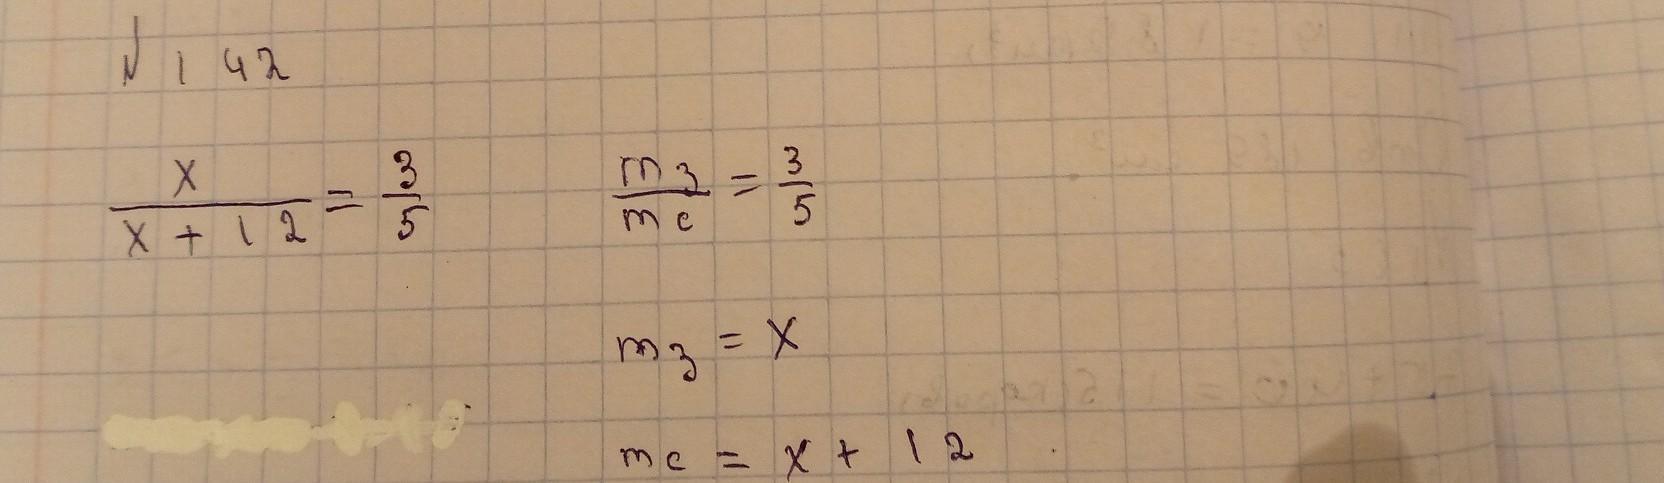 № 142
x/(x + 12) = 3/5
mз/mс = 3/5
mз = x
mс = x + 12